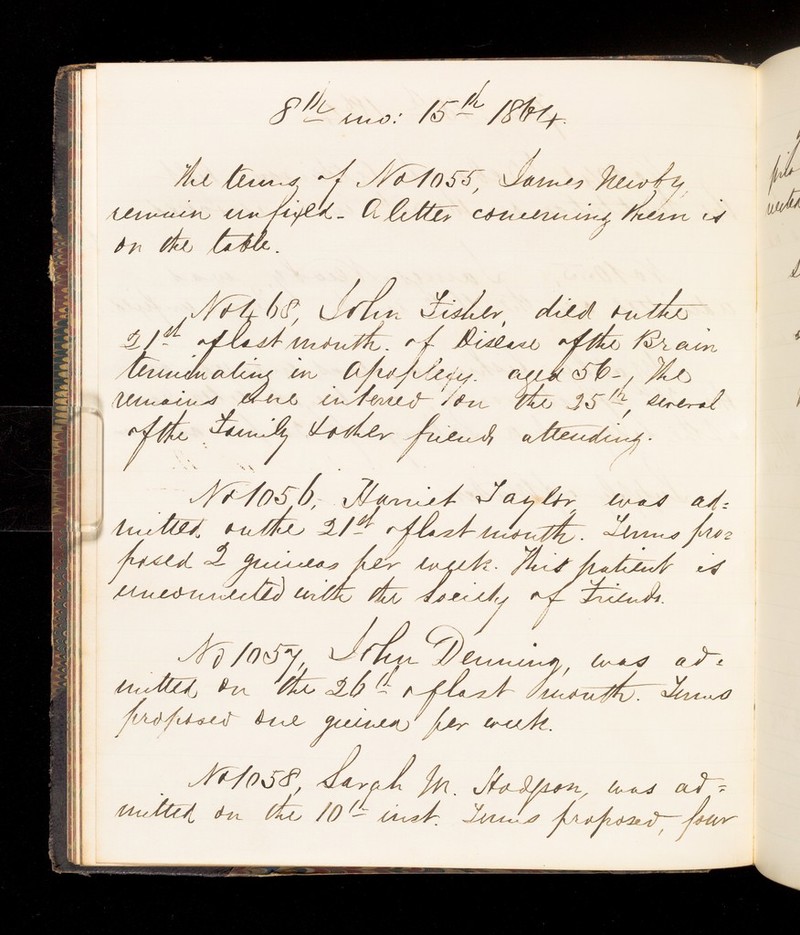 8th mo: 15th 1864.
The terms of No 1055, James Newby,
remain unfixed - A letter concerning them is
on the table.
No 468, John Fisher, died on the
21st of last month. of Disease of the Brain
terminating in Apoplexy. aged 56-, The
remains were interred on the 25th, several
of the Family & other friends attending.
No 1056, Harriet Taylor, was ad=
mitted, on the 21st of last month. Terms pro=
posed 2 guineas per week. This patient is
unconnected with the Society of Friends.
No 1057, John Denning, was ad=
mitted, on the 26th of last month. Terms
proposed one guinea per week.
No 1058, Sarah M. Hodgson, was ad=
mitted on the 10th inst. Terms proposed, four